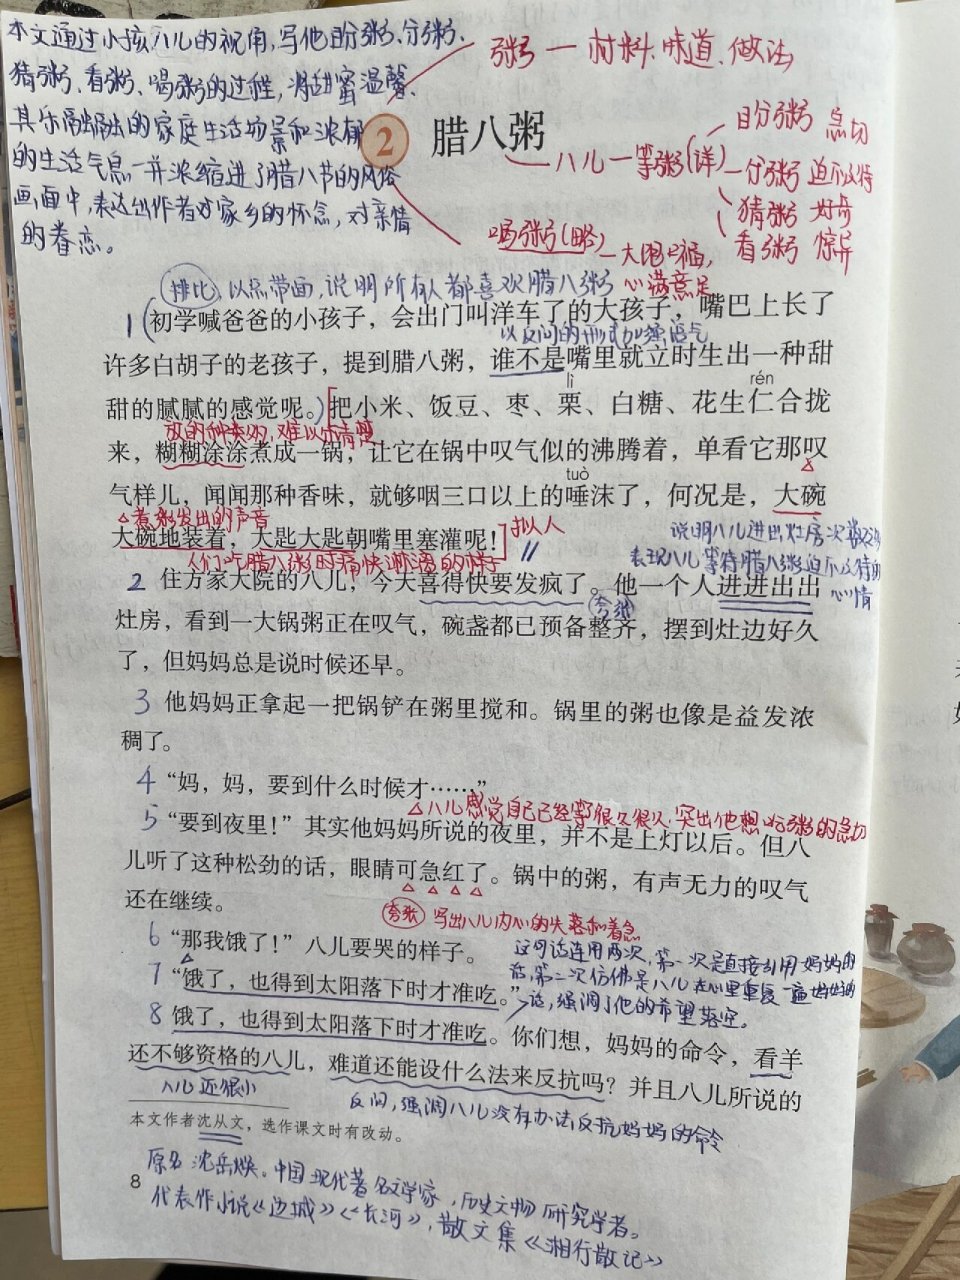 本文通过小孩八儿的视角,写他盼粥、分粥、
猜粥、看粥、喝粥的过程,将甜蜜温馨、
其乐融融的家庭生活场景和浓郁
的生活气息一并浓缩进了腊八节的风俗
画面中,表达出作者对家乡的怀念,对亲情
的眷恋。
粥 — 材料、味道、做法
2 腊八粥
八儿 — 等粥(详)
盼粥 急切
分粥 迫不及待
猜粥 好奇
看粥 惊异
喝粥(略) — 大饱口福,
心满意足
排比,以点带面,说明所有人都喜欢腊八粥
1 初学喊爸爸的小孩子,会出门叫洋车了的大孩子,嘴巴上长了
以反问的形式加强语气
许多白胡子的老孩子,提到腊八粥,谁不是嘴里就立时生出一种甜
lì rén
甜的腻腻的感觉呢。把小米、饭豆、枣、栗、白糖、花生仁合拢
放的种类多,难以分清楚
来,糊糊涂涂煮成一锅,让它在锅中叹气似的沸腾着,单看它那叹
tuò
气样儿,闻闻那种香味,就够咽三口以上的唾沫了,何况是,大碗
煮粥发出的声音
大碗地装着,大匙大匙朝嘴里塞灌呢!
拟人
人们吃腊八粥时痛快淋漓的样子
说明八儿进出灶房次数多,
表现八儿等待腊八粥迫不及待的
心情
2 住方家大院的八儿,今天喜得快要发疯了。他一个人进进出出
夸张
灶房,看到一大锅粥正在叹气,碗盏都已预备整齐,摆到灶边好久
了,但妈妈总是说时候还早。
3 他妈妈正拿起一把锅铲在粥里搅和。锅里的粥也像是益发浓
稠了。
4 “妈,妈,要到什么时候才……”
八儿感觉自己已经等很久很久,突出他想吃粥的急切
5 “要到夜里!”其实他妈妈所说的夜里,并不是上灯以后。但八
儿听了这种松劲的话,眼睛可急红了。锅中的粥,有声无力的叹气
还在继续。
夸张 写出八儿内心的失落和着急
6 “那我饿了!”八儿要哭的样子。
这句话连用两次,第一次是直接引用妈妈的
话,第二次仿佛是八儿在心里重复一遍妈妈的
话,强调了他的希望落空。
7 “饿了,也得到太阳落下时才准吃。”
8 饿了,也得到太阳落下时才准吃。你们想,妈妈的命令,看羊
还不够资格的八儿,难道还能设什么法来反抗吗?并且八儿所说的
八儿还很小
反问,强调八儿没有办法反抗妈妈的命令
本文作者沈从文,选作课文时有改动。
原名沈岳焕。中国现代著名文学家,历史文物研究学者。
代表作小说《边城》《长河》,散文集《湘行散记》
8